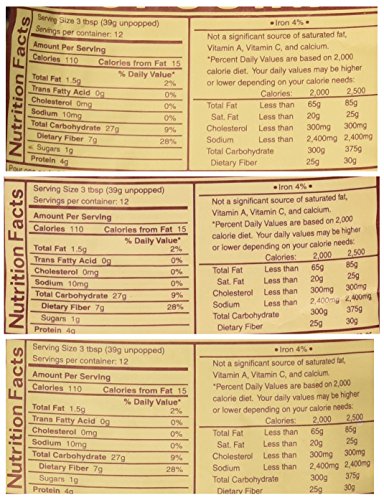 Nutrition Facts
Serving Size 3 tbsp (39g unpopped)
Servings per container: 12
Amount Per Serving
Calories 110 Calories from Fat 15
% Daily Value*
Total Fat 1.5g 2%
Trans Fatty Acid 0g 0%
Cholesterol 0mg 0%
Sodium 10mg 0%
Total Carbohydrate 27g 9%
Dietary Fiber 7g 28%
Sugars 1g
Protein 4g
• Iron 4% •
Not a significant source of saturated fat,
Vitamin A, Vitamin C, and calcium.
*Percent Daily Values are based on 2,000
calorie diet. Your daily values may be higher
or lower depending on your calorie needs:
Calories: 2,000 2,500
Total Fat Less than 65g 85g
Sat. Fat Less than 20g 25g
Cholesterol Less than 300mg 300mg
Sodium Less than 2,400mg 2,400mg
Total Carbohydrate 300g 375g
Dietary Fiber 25g 30g
Nutrition Facts
Serving Size 3 tbsp (39g unpopped)
Servings per container: 12
Amount Per Serving
Calories 110 Calories from Fat 15
% Daily Value*
Total Fat 1.5g 2%
Trans Fatty Acid 0g 0%
Cholesterol 0mg 0%
Sodium 10mg 0%
Total Carbohydrate 27g 9%
Dietary Fiber 7g 28%
Sugars 1g
Protein 4g
• Iron 4% •
Not a significant source of saturated fat,
Vitamin A, Vitamin C, and calcium.
*Percent Daily Values are based on 2,000
calorie diet. Your daily values may be higher
or lower depending on your calorie needs:
Calories: 2,000 2,500
Total Fat Less than 65g 85g
Sat. Fat Less than 20g 25g
Cholesterol Less than 300mg 300mg
Sodium Less than 2,400mg 2,400mg
Total Carbohydrate 300g 375g
Dietary Fiber 25g 30g
Nutrition Facts
Serving Size 3 tbsp (39g unpopped)
Servings per container: 12
Amount Per Serving
Calories 110 Calories from Fat 15
% Daily Value*
Total Fat 1.5g 2%
Trans Fatty Acid 0g 0%
Cholesterol 0mg 0%
Sodium 10mg 0%
Total Carbohydrate 27g 9%
Dietary Fiber 7g 28%
Sugars 1g
Protein 4g
• Iron 4% •
Not a significant source of saturated fat,
Vitamin A, Vitamin C, and calcium.
*Percent Daily Values are based on 2,000
calorie diet. Your daily values may be higher
or lower depending on your calorie needs:
Calories: 2,000 2,500
Total Fat Less than 65g 85g
Sat. Fat Less than 20g 25g
Cholesterol Less than 300mg 300mg
Sodium Less than 2,400mg 2,400mg
Total Carbohydrate 300g 375g
Dietary Fiber 25g 30g